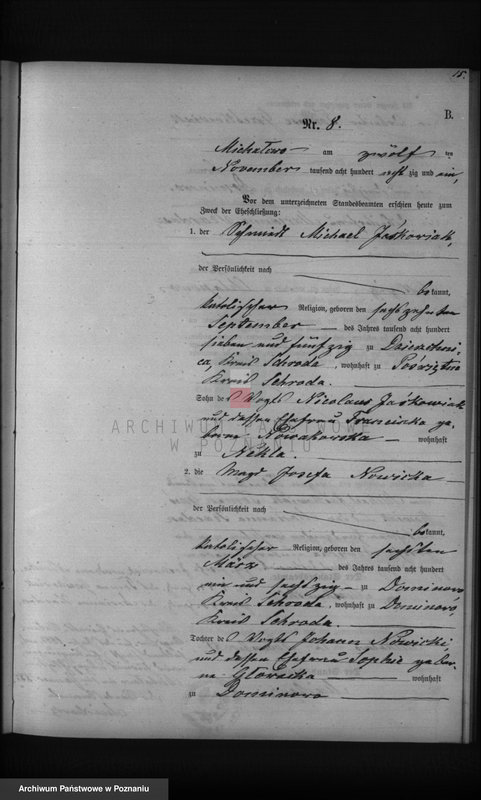 15.
B.
Nr. 8.
Michalowo am zwölf ten
November tausend acht hundert acht zig und ein,
Vor dem unterzeichneten Standesbeamten erschien heute zum
Zweck der Eheschließung:
1. der Schmidt Michael Jaskowiak,
der Persönlichkeit nach
bekannt,
katolischer Religion, geboren den sechszehnten
September des Jahres tausend acht hundert
sieben und fünfzig zu
Kreis Schroda, wohnhaft zu
Kreis Schroda.
Sohn des Vogts Nicolaus Jaskowiak
und dessen Ehefrau Franciska ge-
borne Nowakowska wohnhaft
zu Nekla.
2. die Magd Josefa Nowicka
der Persönlichkeit nach
bekannt,
katolischer Religion, geboren den sechsten
März des Jahres tausend acht hundert
ein und sechszig zu Dominowo
Kreis Schroda, wohnhaft zu Dominowo,
Kreis Schroda.
Tochter des Vogts Johann Nowicki
und dessen Ehefrau Sophie gebor-
ne wohnhaft
zu Dominowo
ARCHIWUM PAŃSTWOWE
W POZNANIU
Archiwum Państwowe w Poznaniu